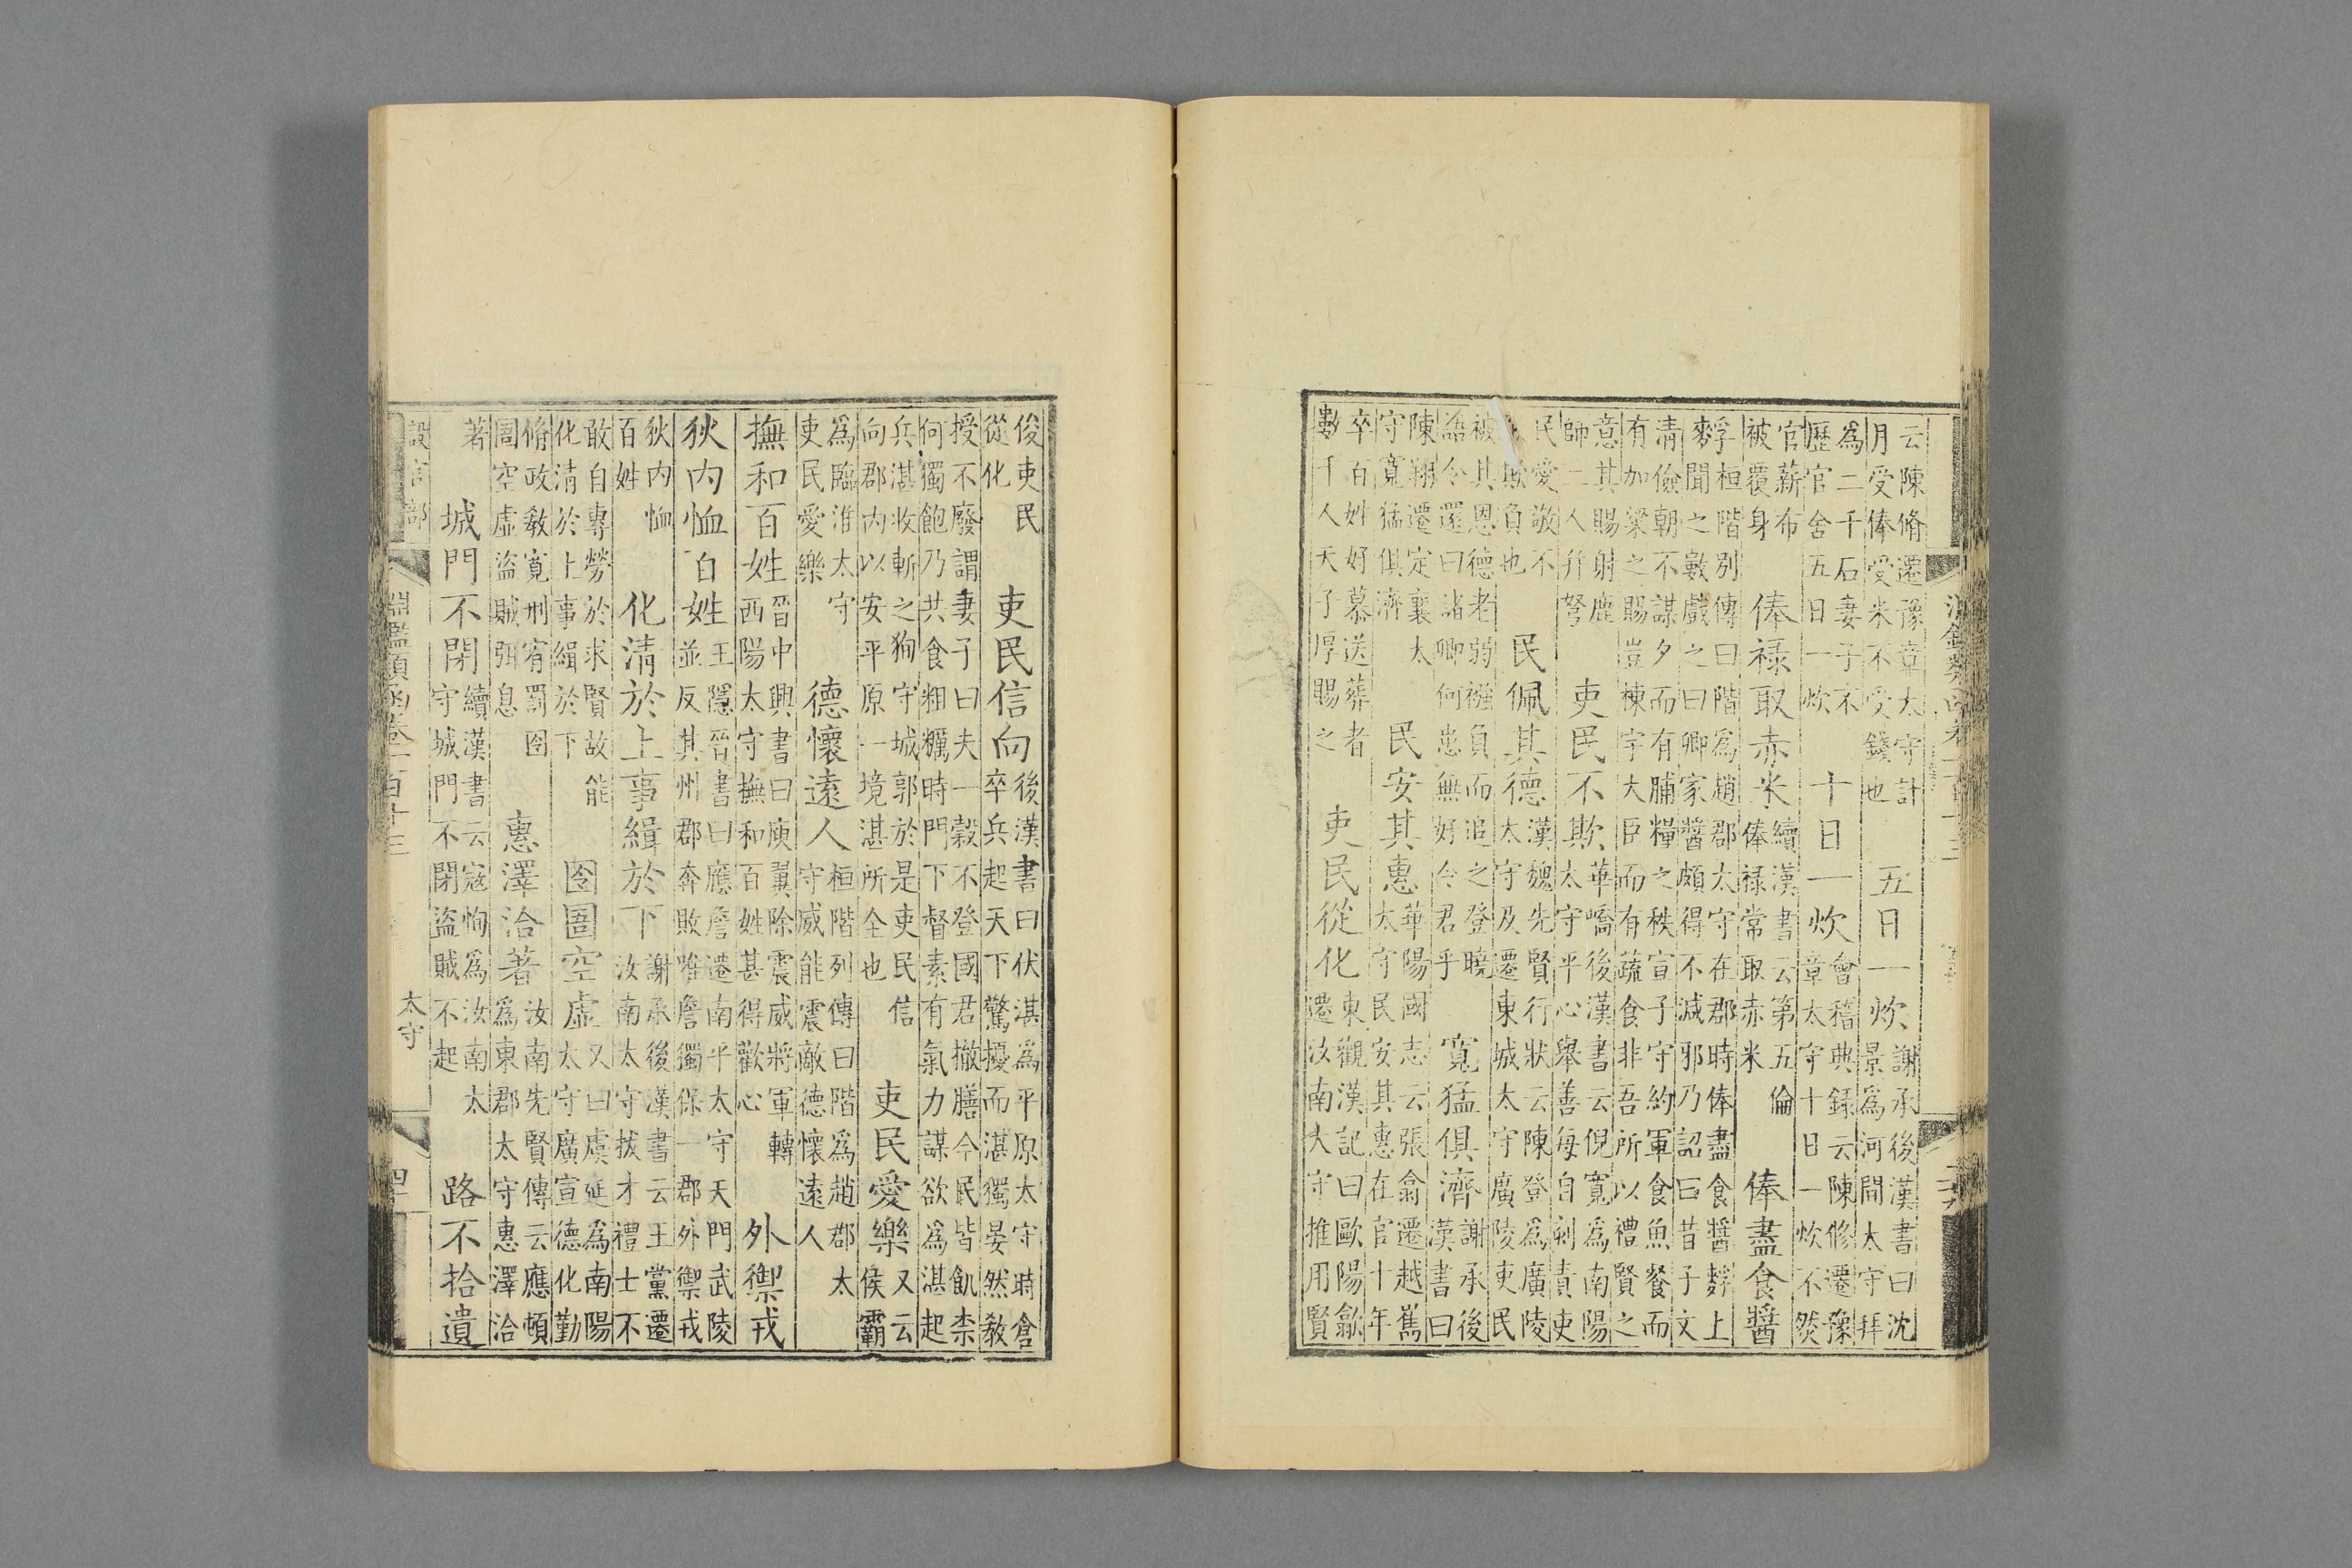 云陳脩遷豫章太守計
月受俸受米不受錢也
五日一炊
謝承後漢書曰沈
景爲河間太守拜
爲二千石妻子不
歷官舍五日一炊
十日一炊
會稽典録云陳修遷豫
章太守十日一炊不然
官薪布
被覆身
俸禄取赤米
續漢書云第五倫
俸禄常取赤米
俸盡食醬
孚桓階别傳曰階爲趙郡太守在郡時俸盡食醬上
麥聞之數戲之曰卿家醬頗得不減邪乃詔曰昔子文
清儉朝不謀夕而有脯糧之秩宣子守約軍食魚餐而
有加粱之賜豈棟宇大臣而有蔬食非吾所以禮賢之
意其賜射鹿
師二人并弩
吏民不欺
華嶠後漢書云倪寬爲南陽
太守平心舉善每自刻責吏
民愛敬不
欺負也
民佩其德
漢魏先賢行狀云陳登爲廣陵
太守及遷東城太守廣陵吏民
被其恩德老弱襁負而追之登曉
語令還曰諸卿何患無好令君乎
寬猛俱濟
謝承後
漢書曰
陳翔遷定襄太
守寬猛俱濟
民安其惠
華陽國志云張翕遷越嶲
太守民安其惠在官十年
卒百姓好慕送葬者
數千人天子厚賜之
吏民從化
東觀漢記曰歐陽歙
遷汝南大守推用賢
俊吏民
從化
吏民信向
後漢書曰伏湛爲平原太守時倉
卒兵起天下驚擾而湛獨晏然教
授不廢謂妻子曰夫一穀不登國君撤膳今民皆飢柰
何獨飽乃共食粗糲時門下督素有氣力謀欲爲湛起
兵湛收斬之狥守城郭於是吏民信
向郡内以安平原一境湛所全也
吏民愛樂
又云
侯霸
爲臨淮太守
吏民愛樂
德懷遠人
桓階列傳曰階爲趙郡太
守威能震敵德懷遠人
撫和百姓
晉中興書曰庾翼除震威將軍轉
西陽太守撫和百姓甚得歡心
外禦戎
狄内恤百姓
王隱晉書曰應詹遷南平太守天門武陵
並反其州郡奔敗唯詹獨保一郡外禦戎
狄内恤
百姓
化清於上事緝於下
謝承後漢書云王黨遷
汝南太守拔才禮士不
敢自專勞於求賢故能
化清於上事緝於下
囹圄空虛
又曰虞延爲南陽
太守廣宣德化勤
脩政敎寬刑宥罰囹
圄空虛盜賊弭息
惠澤洽著
汝南先賢傳云應頓
爲東郡太守惠澤洽
著
城門不閉
續漢書云寇恂爲汝南太
守城門不閉盜賊不起
路不拾遺
設官部
淵鑑類函卷一百十三
太守